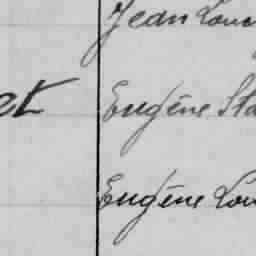 Jean Lou
et Eugène Sta
Eugène Lou